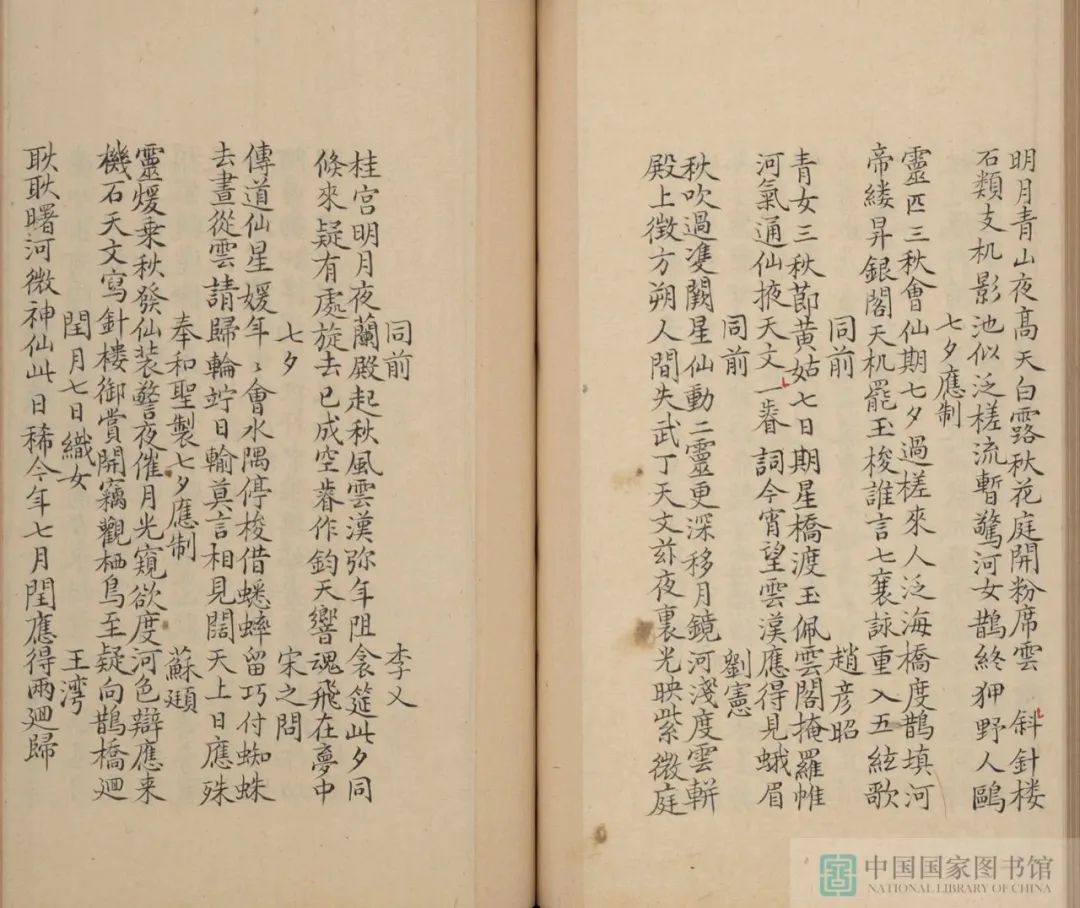 明月青山夜高天白露秋花庭開粉席雲 斜針楼
石類支机影池似泛槎流暫驚河女鵲終狎野人鷗
七夕應制
靈匹三秋會仙期七夕過槎來人泛海橋度鵲填河
帝縷昇銀閣天机罷玉梭誰言七襄詠重入五絃歌
同前 趙彦昭
青女三秋節黄姑七日期星橋渡玉佩雲閣掩羅帷
河氣通仙掖天文一睿詞今宵望雲漢應得見蛾眉
同前 劉憲
秋吹過雙闕星仙動二靈更深移月鏡河淺度雲軿
殿上徴方朔人間失武丁天文茲夜裏光映紫微庭
同前 李乂
桂宫明月夜蘭殿起秋風雲漢弥年阻衾筵此夕同
倏來疑有處旋去已成空睿作鈞天響魂飛在夢中
七夕 宋之問
傳道仙星媛年〻會水隅停梭借蟋蟀留巧付蜘蛛
去晝從雲請歸輪竚日輸莫言相見闊天上日應殊
奉和聖製七夕應制 蘇頲
靈媛乗秋發仙装警夜催月光窺欲度河色辯應来
機石天文寫針樓御賞開竊觀栖鳥至疑向鵲橋迴
閏月七日織女 王湾
耿耿曙河微神仙此日稀今年七月閏應得兩迴歸
中国国家图书馆
NATIONAL LIBRARY OF CHINA